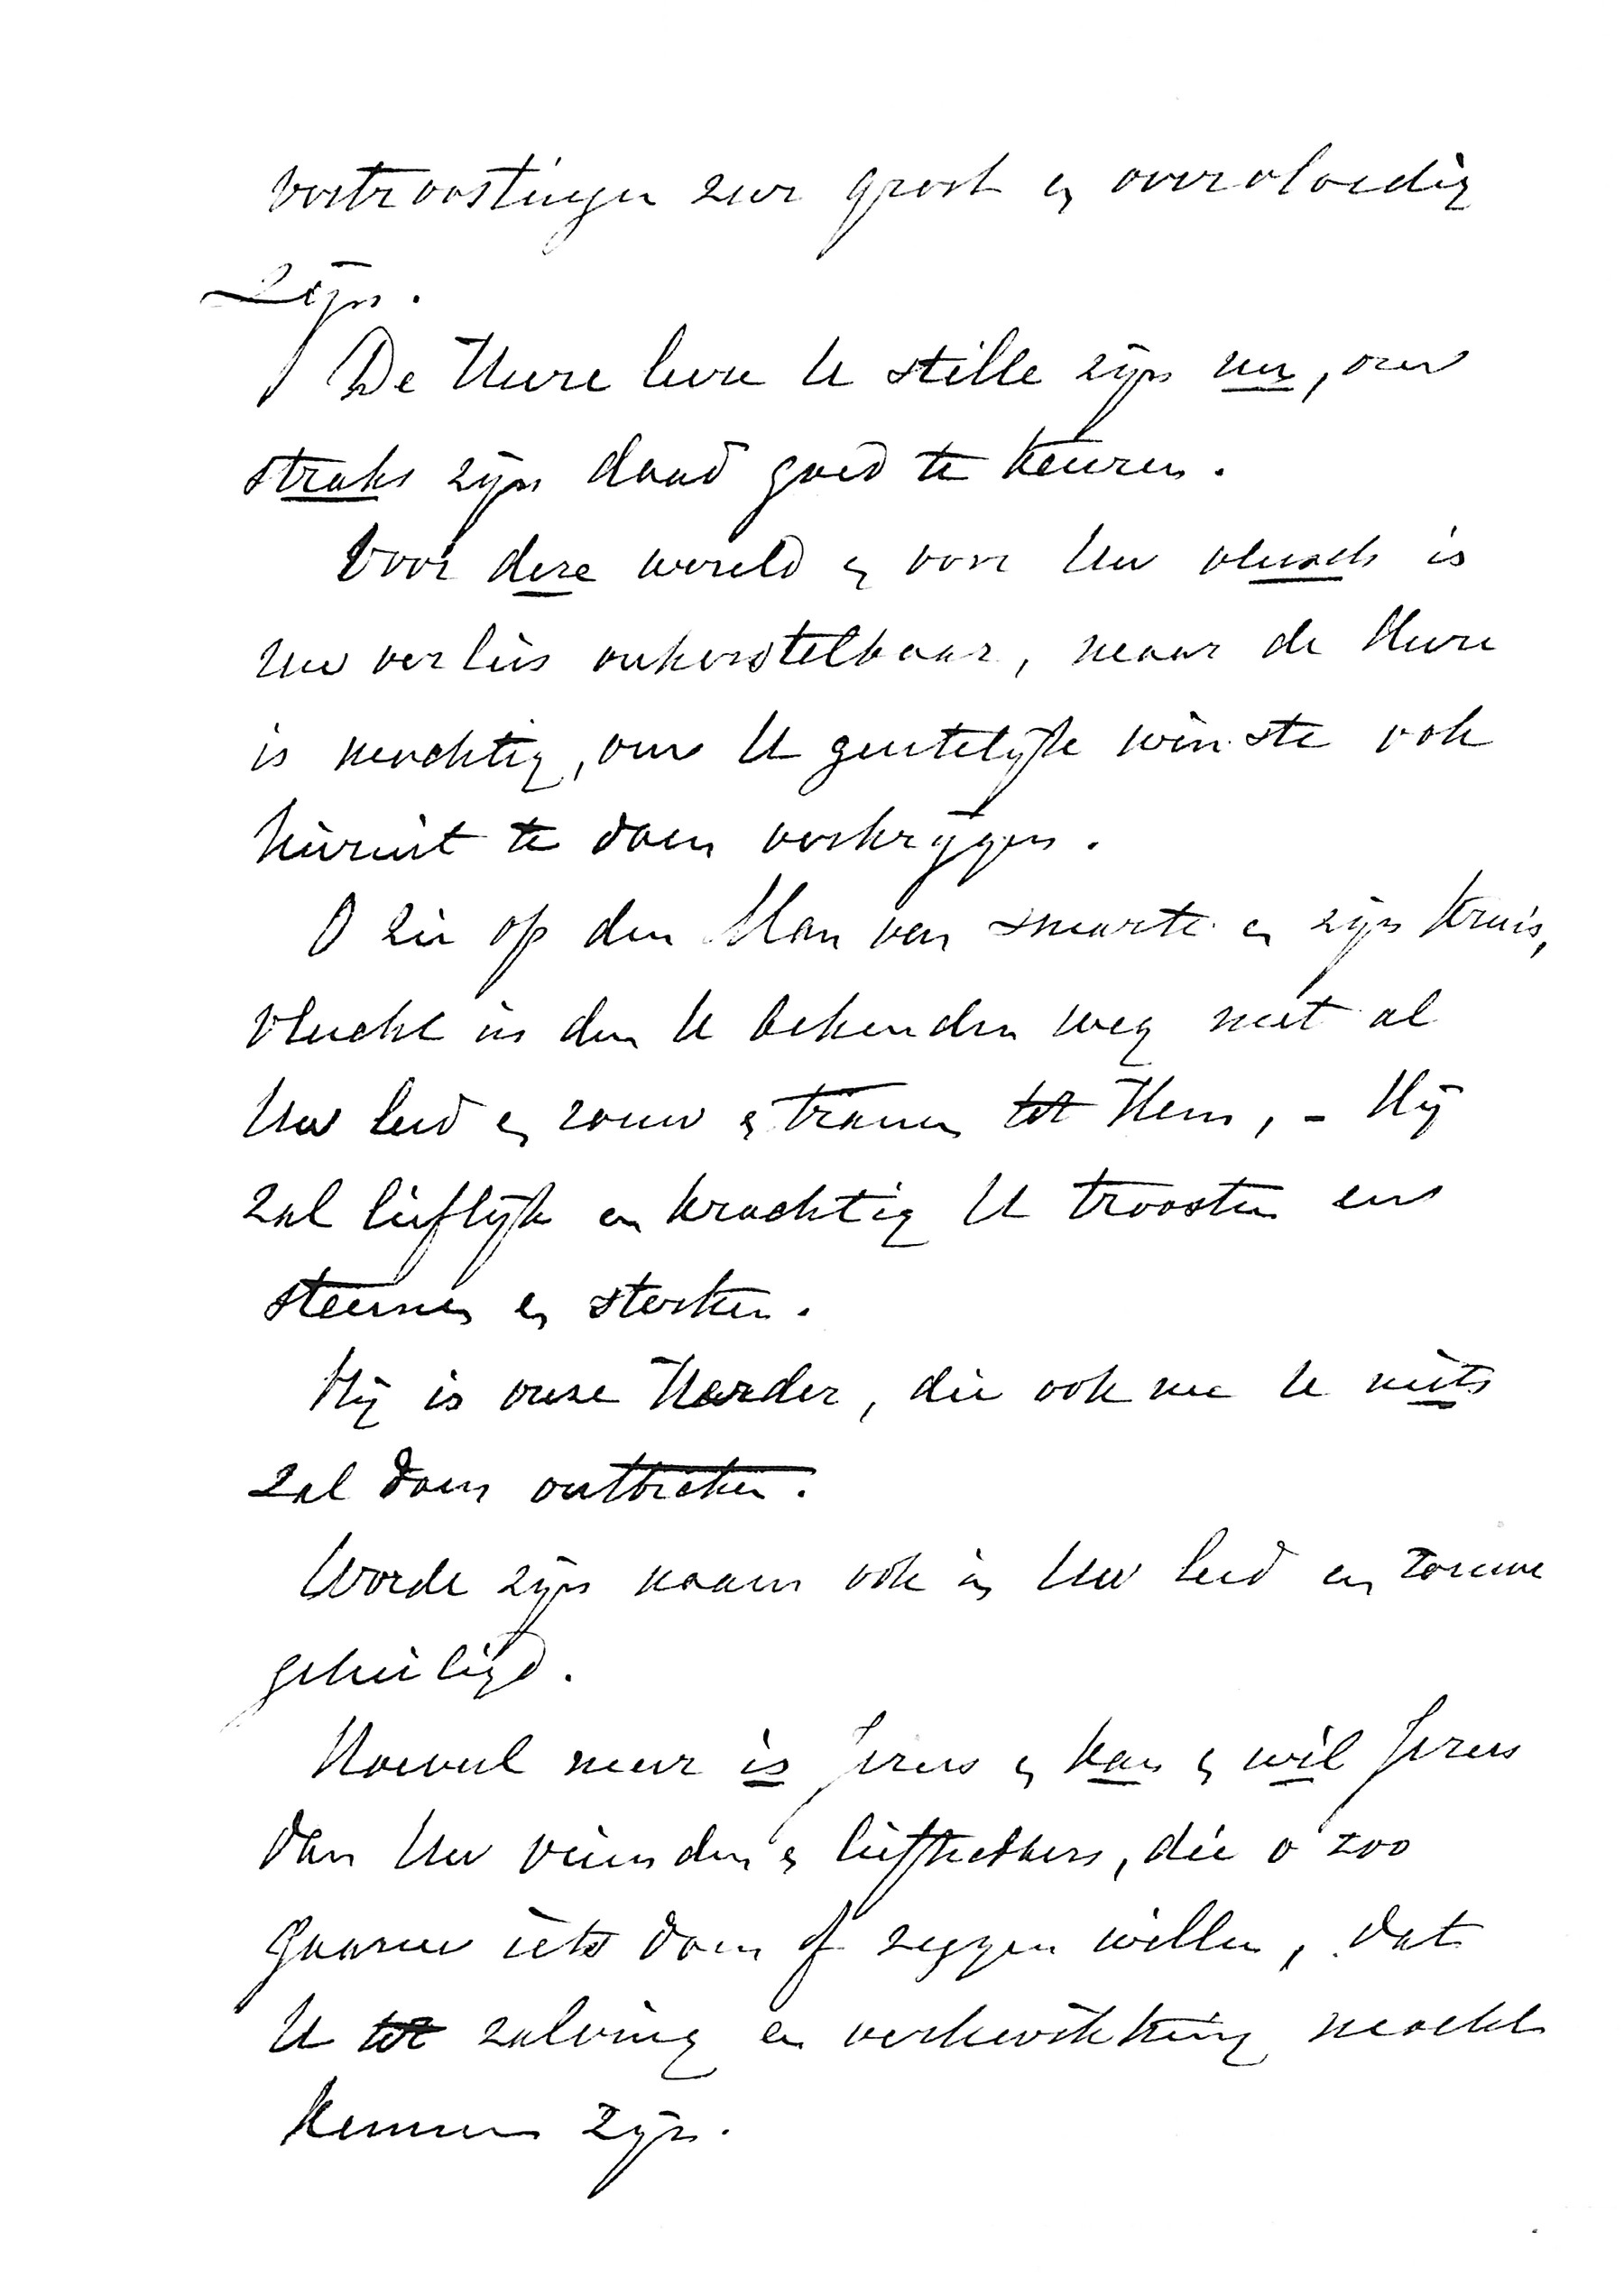 vertroostingen zeer groot en overvloedig
zijn.
De Heere leere U stille zijn nu, om
straks zijn daad goed te keuren.
Voor deze wereld en voor Uw vleesch is
Uw verlies onherstelbaar, maar de Heere
is machtig, om U geestelijke winste ook
hieruit te doen verkrijgen.
O zie op den Man van smarte en zijn kruis,
vlucht in den U bekenden weg met al
Uw leed en rouw en tranen tot Hem, - Hij
zal lieflijk en krachtig U troosten en
steunen en sterken.
Hij is onze Herder, die ook nu U niets
zal doen ontbreken.
Worde zijn naam ook in Uw leed en rouwe
geheiligd.
Hoeveel meer is Jezus en kan en wil Jezus
dan Uw vrienden en liefhebbers, die o zoo
gaarne iets doen of zeggen willen, dat
U tot zalving en verkwikking mocht
kunnen zijn.